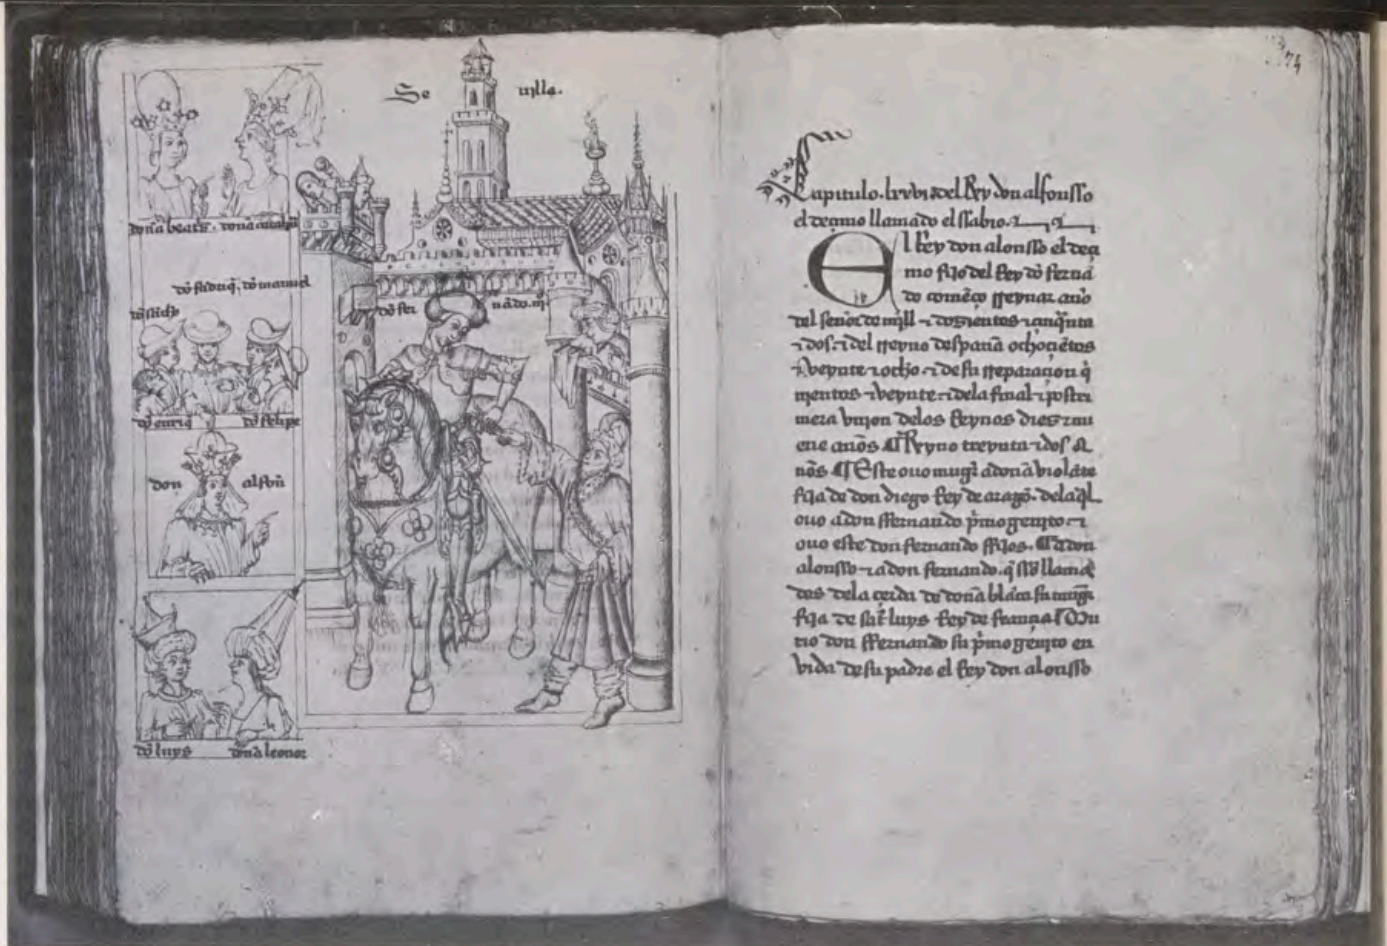 Se villa.
doña beatriz. doña
dō fadriq̄. dō manuel
dō fer nādo. iij
dō enriq̄ dō felipe
don alfon
dō luys doña leonor
74
Capitulo. lxvi del Rey don alfonsso
el deçimo llamado el ssabio.
El Rey don alonsso el deçi
mo fijo del Rey dō ferna
do comēço rreynar año
del señor de mjll ⁊ dozientos ⁊ çinquēta
⁊ dos. ⁊ del rreyno despaña ochoçiētos
⁊ veynte ⁊ ocho. ⁊ de su rreparaçion q̄
njentos ⁊ veynte. ⁊ dela final ⁊ postri
mera vnjon delos Reynos diez ⁊ nu
eue años ¶ Reyno treynta ⁊ dos a
ños ¶ Este ouo muger a doña violāte
fija de don diego Rey de aragō. dela q̄l
ouo a don ffernando p̄mogenjto ⁊
ouo este don fernando fijos. ¶ a don
alonsso ⁊ a don fernando. q̄ llama
dos dela çerda de doña blāca su muger
fija de sāt luys Rey de françia ¶ Mu
rio don ffernando su p̄mogenjto en
vida de su padre el Rey don alonsso